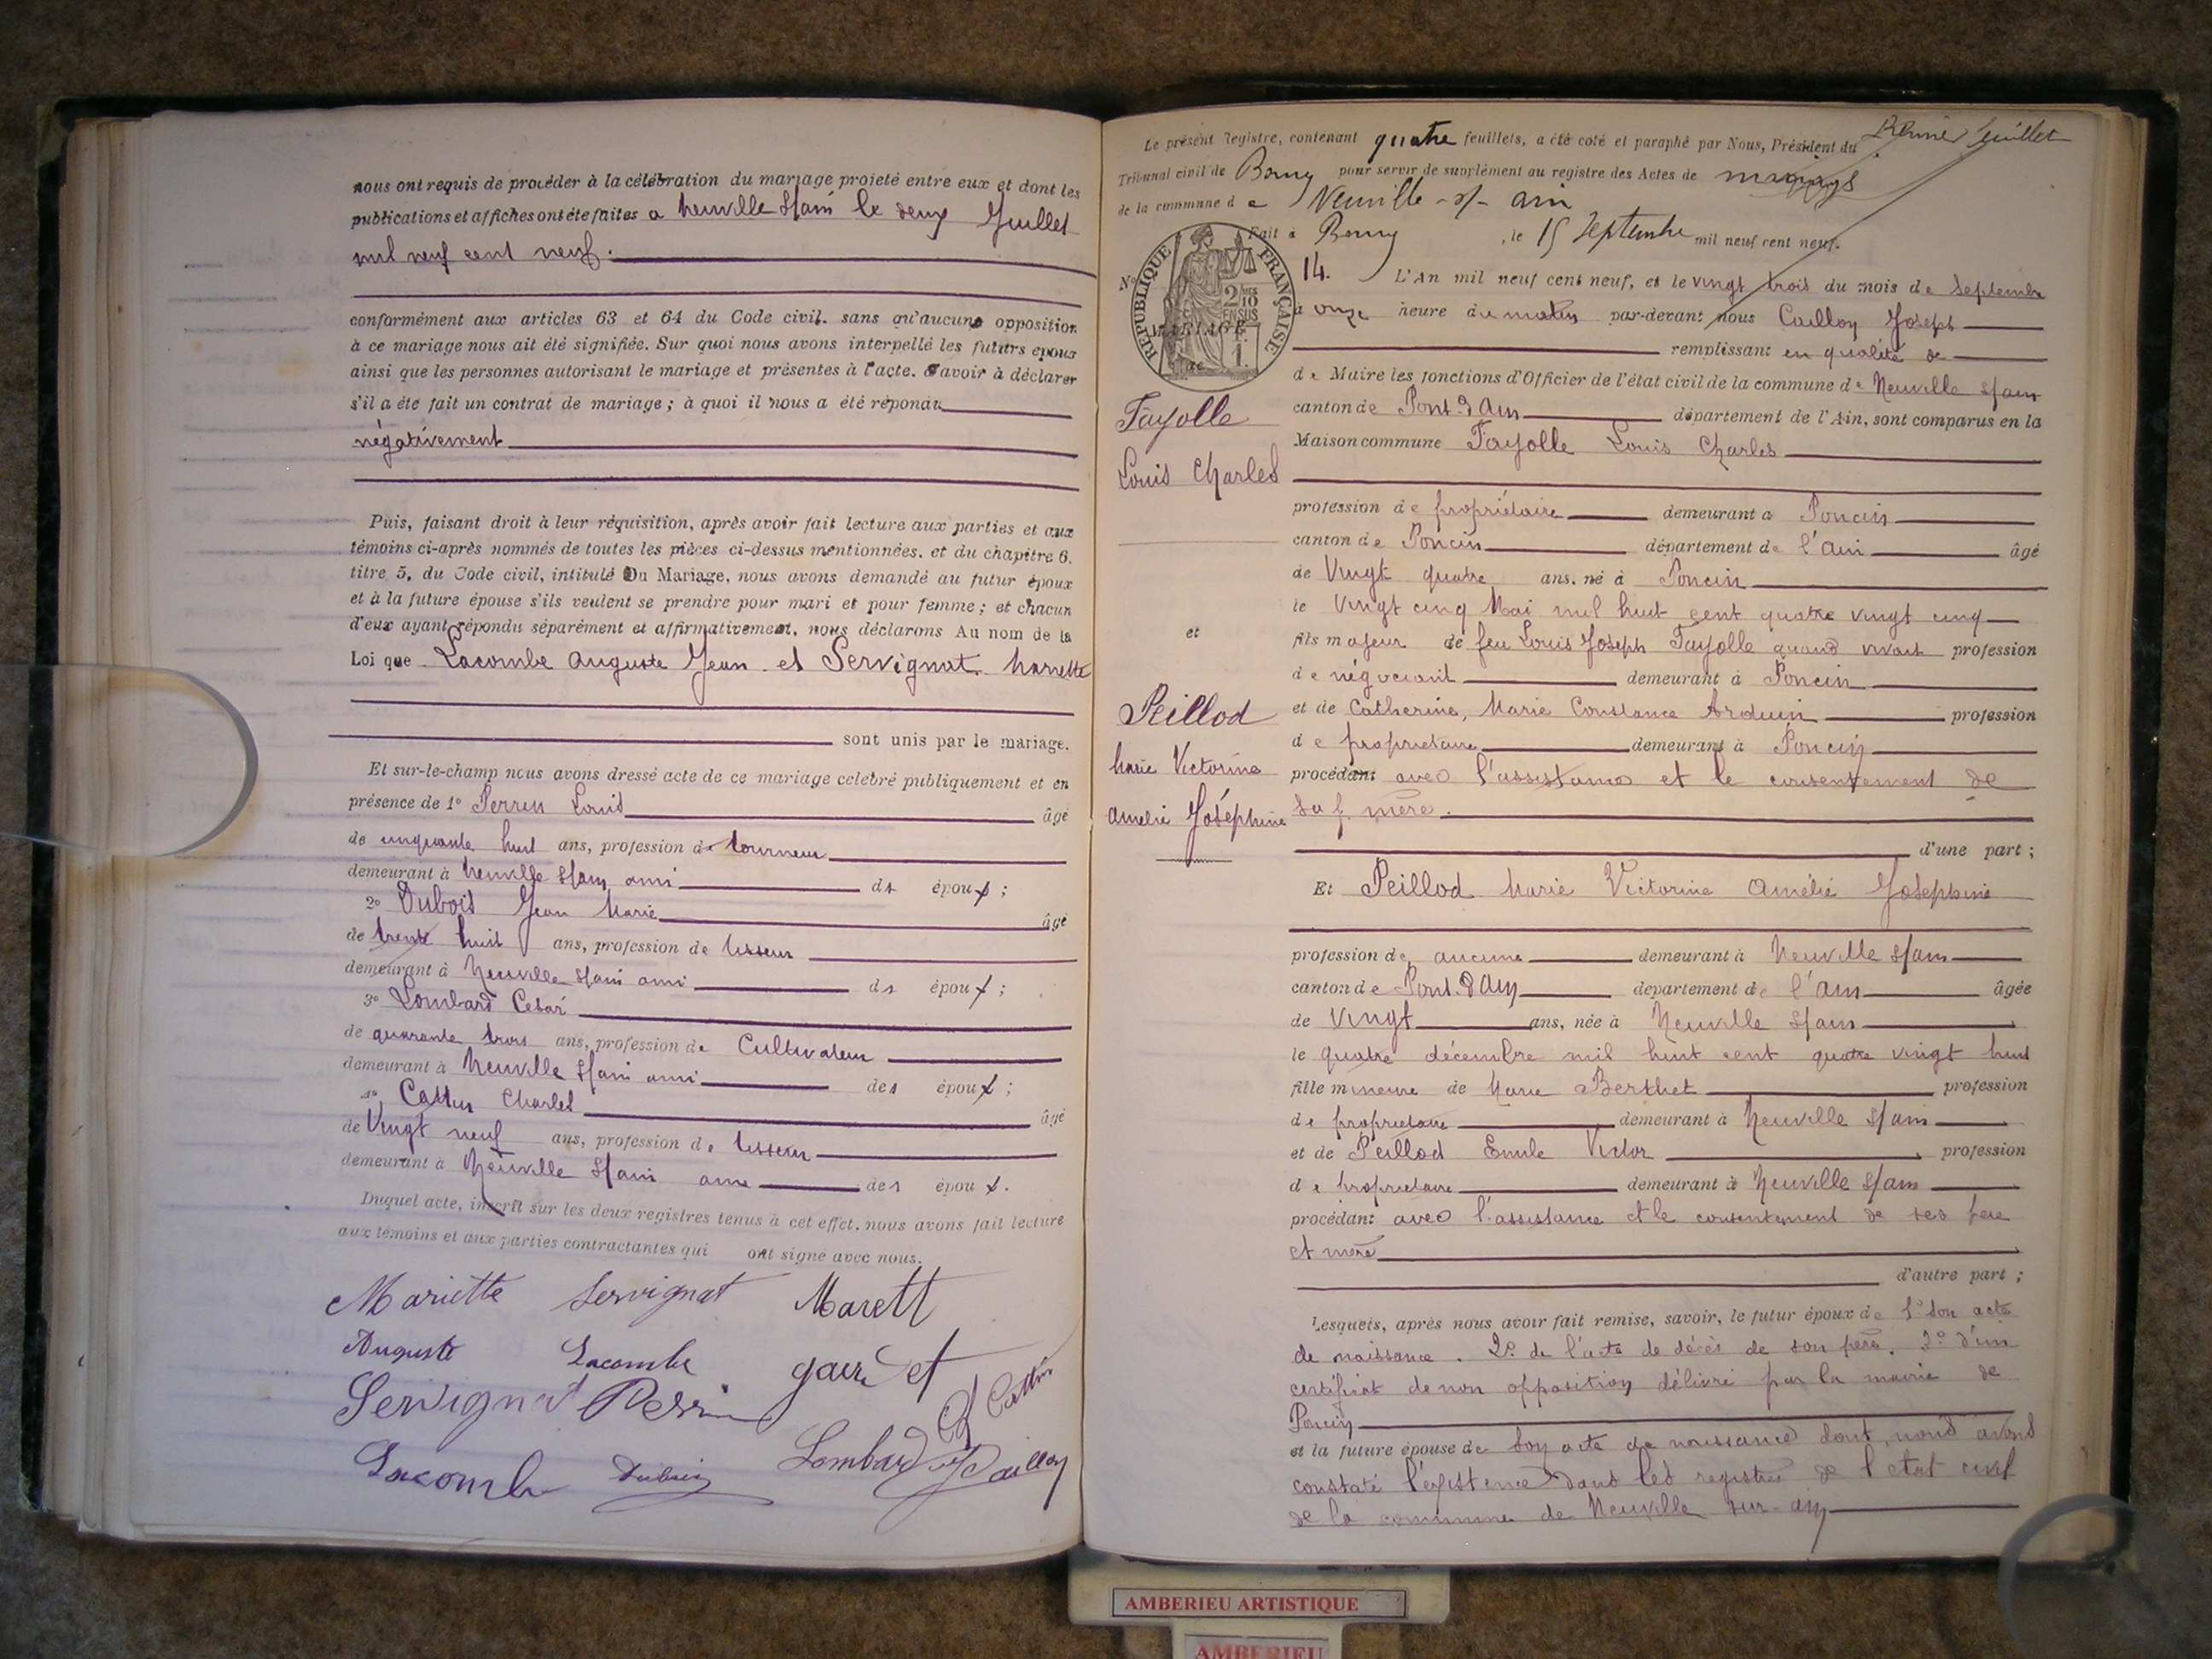 nous ont requis de procéder à la célébration du mariage projeté entre eux et dont les
publications et affiches ont été faites a Neuville s/ain le deux Juillet
mil neuf cent neuf.
conformément aux articles 63 et 64 du Code civil, sans qu'aucune opposition
à ce mariage nous ait été signifiée. Sur quoi nous avons interpellé les futurs epoux
ainsi que les personnes autorisant le mariage et présentes à l'acte, d'avoir à déclarer
s'il a été fait un contrat de mariage ; à quoi il nous a été répondu
négativement
Puis, faisant droit à leur réquisition, après avoir fait lecture aux parties et aux
témoins ci-après nommés de toutes les pièces ci-dessus mentionnées, et du chapitre 6,
titre 5, du Code civil, intitulé Du Mariage, nous avons demandé au futur époux
et à la future épouse s'ils veulent se prendre pour mari et pour femme ; et chacun
d'eux ayant répondu séparément et affirmativement, nous déclarons Au nom de la
Loi que Lacombe Auguste Jean et Servignat Mariette
sont unis par le mariage.
Et sur-le-champ nous avons dressé acte de ce mariage célébré publiquement et en
présence de 1° Perrin Louis âgé
de cinquante huit ans, profession de tourneur
demeurant à Neuville s/ain ami des époux ;
2° Dubois Jean Marie âgé
de trente huit ans, profession de tisseur
demeurant à Neuville s/ain ami des époux ;
3° Lombard César
de quarante trois ans, profession de Cultivateur
demeurant à Neuville s/ain ami des époux ;
4° Cattin Charles âgé
de Vingt neuf ans, profession de tisseur
demeurant à Neuville s/ain ami des époux.
Duquel acte, inscrit sur les deux registres tenus à cet effet, nous avons fait lecture
aux témoins et aux parties contractantes qui ont signé avec nous.
Mariette Servignat Marett
Auguste Lacombe
Servignat Perrin Ch Cattin
Lacombe Dubois Lombard J Caillon
Le présent Registre, contenant quatre feuillets, a été coté et paraphé par Nous, Président du
Tribunal civil de Bourg pour servir de supplément au registre des Actes de mariages
de la commune de Neuville -s/- ain
Fait à Bourg, le 15 Septembre mil neuf cent neuf.
feuillet
RÉPUBLIQUE FRANÇAISE
N° 14.
MARIAGE
L'An mil neuf cent neuf, et le vingt trois du mois de Septembre
à onze heure du matin par-devant nous Caillon Joseph
remplissant en qualité de
de Maire les fonctions d'Officier de l'état civil de la commune de Neuville s/ain
canton de Pont d'Ain département de l'Ain, sont comparus en la
Maison commune Fayolle Louis Charles
Fayolle
Louis Charles
et
Peillod
Marie Victorine
Amélie Joséphine
profession de propriétaire demeurant à Poncin
canton de Poncin département de l'Ain âgé
de Vingt quatre ans, né à Poncin
le vingt cinq Mai mil huit cent quatre vingt cinq
fils majeur de feu Louis Joseph Fayolle quand vivait profession
de négociant demeurant à Poncin
et de Catherine, Marie Constance Arduin profession
de propriétaire demeurant à Poncin
procédant avec l'assistance et le consentement de
sa mère.
d'une part ;
Et Peillod Marie Victorine Amélie Joséphine
profession de aucune demeurant à Neuville s/ain
canton de Pont d'Ain département de l'Ain âgée
de Vingt ans, née à Neuville s/ain
le quatre décembre mil huit cent quatre vingt huit
fille mineure de Marie Berthet profession
de propriétaire demeurant à Neuville s/ain
et de Peillod Emile Victor profession
de propriétaire demeurant à Neuville s/ain
procédant avec l'assistance et le consentement de ses père
et mère
d'autre part ;
Lesquels, après nous avoir fait remise, savoir, le futur époux de 1° son acte
de naissance. 2° de l'acte de décès de son père. 3° d'un
certificat de non opposition délivré par la mairie de
Poncin
et la future épouse de son acte de naissance dont nous avons
constaté l'existence dans les registres de l'état civil
de la commune de Neuville sur-ain
AMBERIEU ARTISTIQUE
AMBERIEU